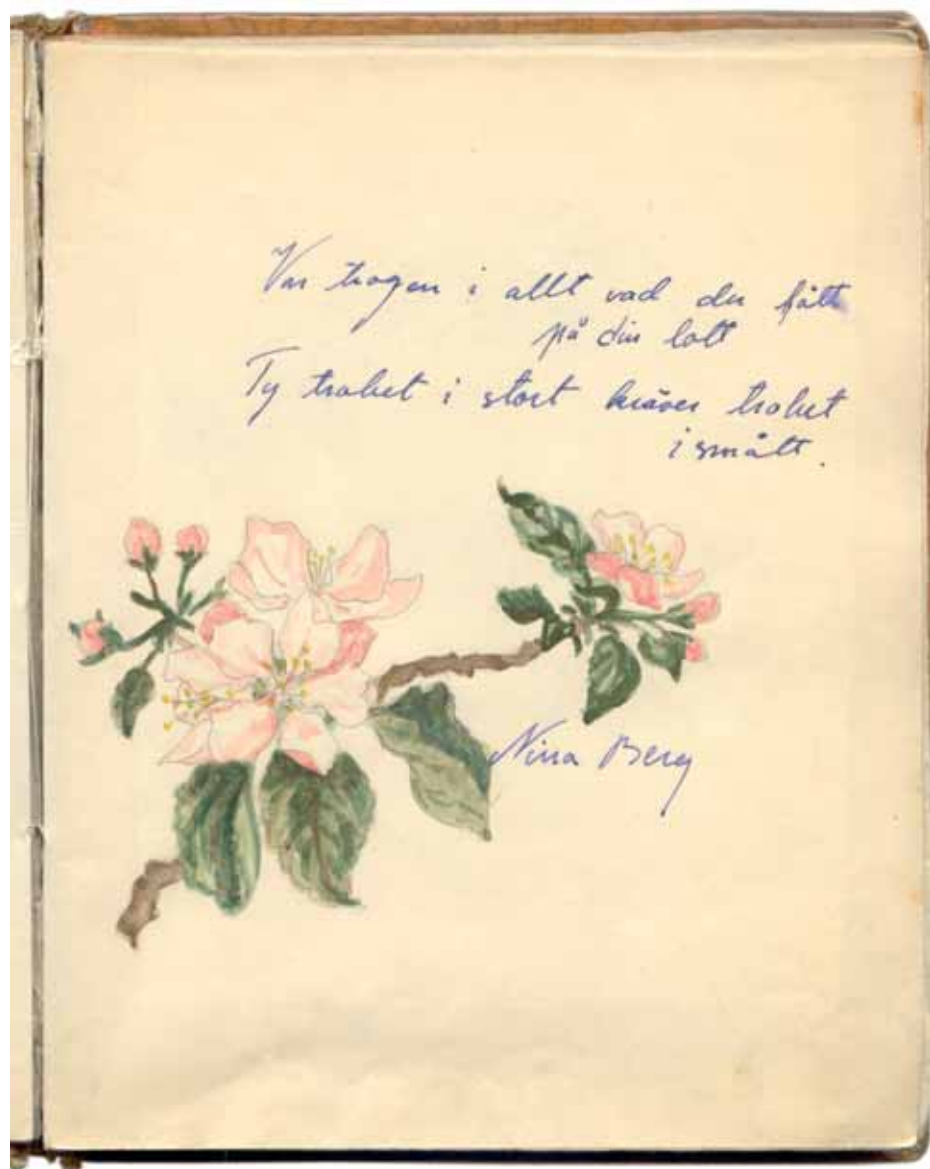 Var trogen i allt vad du fått
på din lott
Ty trohet i stort kräver trohet
i smått.
Nina Berg